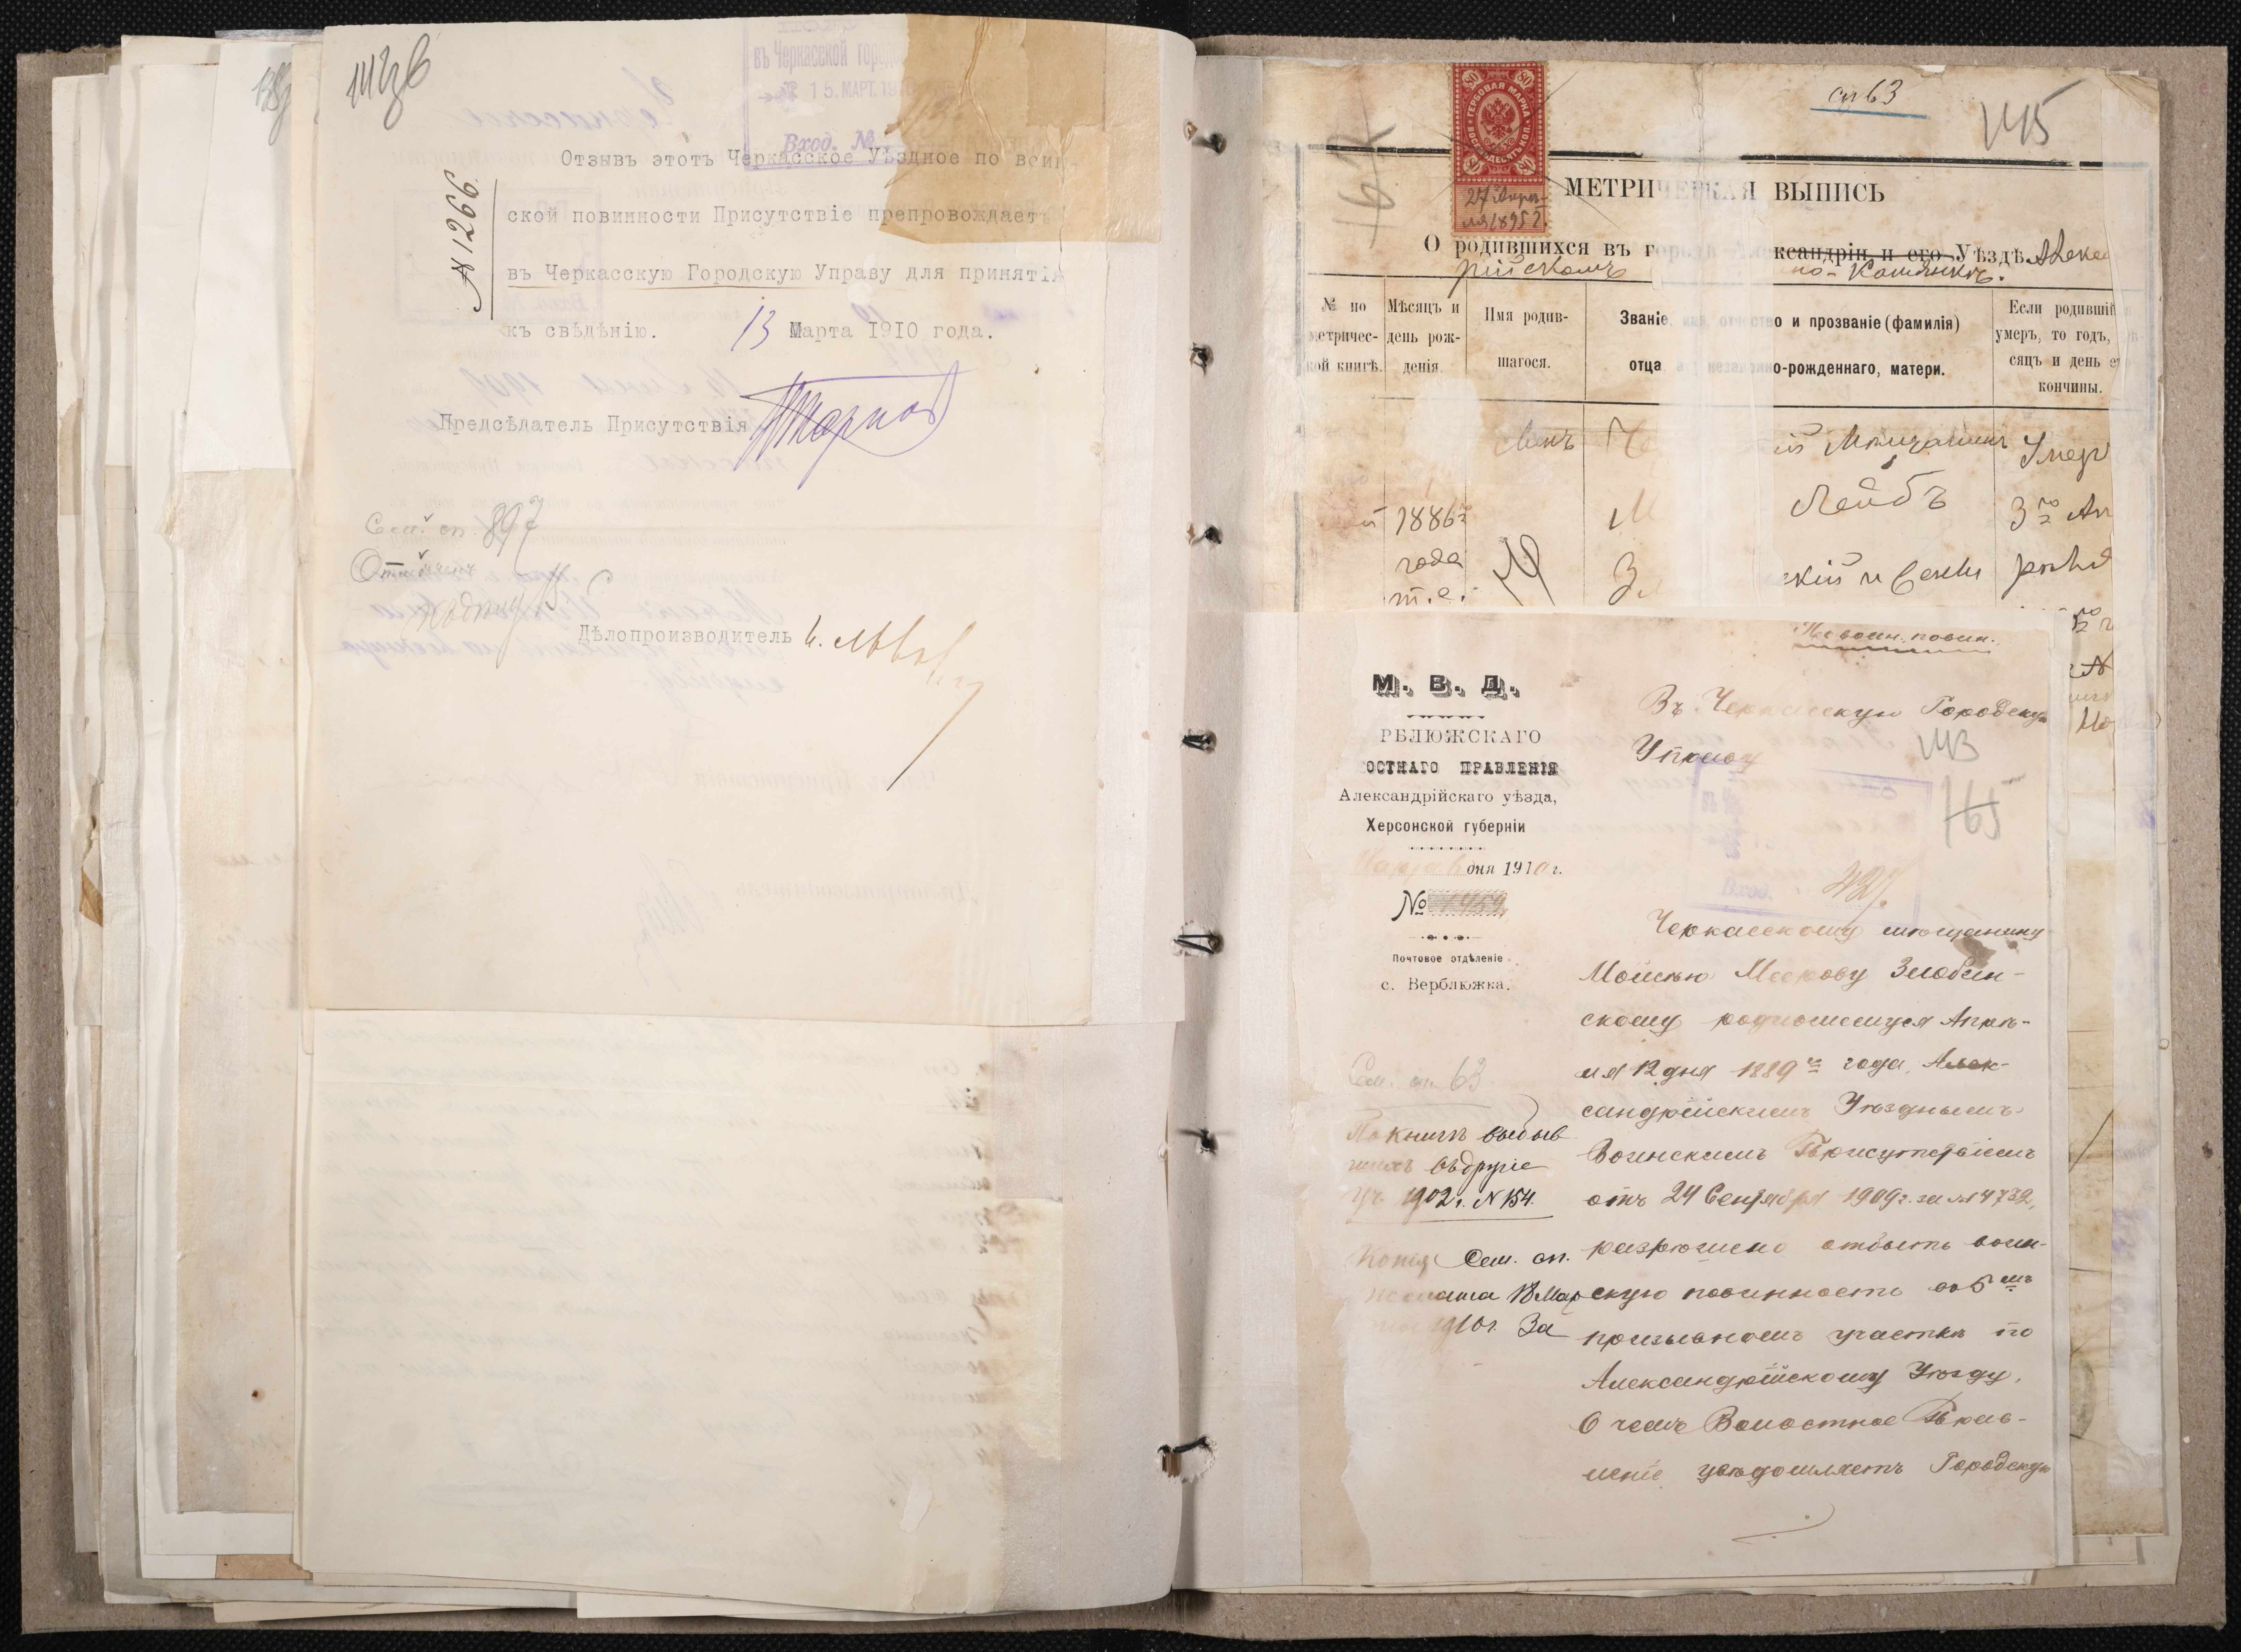 въ Черкасской
15. МАРТ. 19
Вход. №
№ 1266
Отзывъ этотъ Черкасское Уѣздное по воин-
ской повинности Присутствіе препровождаетъ
въ Черкасскую Городскую Управу для принятія
къ свѣдѣнію. 13 Марта 1910 года.
Предсѣдатель Присутствія
Сем. сп. 897
Дѣлопроизводитель
сп 63
145
ГЕРБОВАЯ МАРКА
ВОСЕМЬДЕСЯТЪ КОП.
80
27 Апрѣ-
ля 1895 г.
МЕТРИЧЕСКАЯ ВЫПИСЬ
О родившихся въ городѣ Александріи и его Уѣздѣ
рійскомъ
№ по
метричес-
кой книгѣ.
Мѣсяцъ и
день рож-
денія.
Имя родив-
шагося.
Званіе, имя, отчество и прозваніе (фамилія)
отца о-рожденнаго, матери.
Если родившій
умеръ, то годъ,
сяцъ и день е
кончины.
ій Мѣщанинъ
Лейбъ
кій и
Умер
3го Ап
рѣля
1886го
года
т. е.
По воин. повин.
М. В. Д.
РБЛЮЖСКАГО
ОСТНАГО ПРАВЛЕНІЯ
Александрійскаго уѣзда,
Херсонской губерніи
Марта 6 дня 1910 г.
№ 1459
Почтовое отдѣленіе
с. Верблюжка.
Въ Черкасскую Городскую
Управу
143
165
427.
Вход.
Черкасскому мѣщанину
Мойсѣю Меерову Злобин-
скому родившемуся Апрѣ-
ля 12 дня 1889го года, Алек-
сандрійскимъ Уѣзднымъ
Воинскимъ Присутствіемъ
отъ 24 Сентября 1909 г. за № 4732,
разрѣшено отбыть воин-
скую повинность въ 5мъ
призывномъ участкѣ по
Александрійскому Уѣзду,
О чемъ Волостное Прав-
леніе увѣдомляетъ Городскую
Сем. сп. 63
По книгѣ выбыв
шихъ въ другіе
1902 г. N 154.
Копія Сем. сп.
13 Мар
1910 г. За